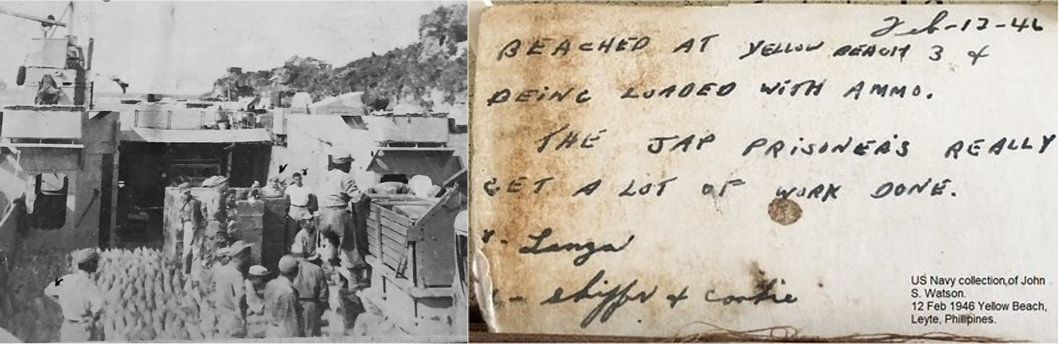 Feb-12-46
BEACHED AT YELLOW BEACH 3 &
BEING LOADED WITH AMMO.
THE JAP PRISONER'S REALLY
GET A LOT OF WORK DONE.
x - Lenza
- skipper & cookie
US Navy collection,of John
S. Watson.
12 Feb 1946 Yellow Beach,
Leyte, Phillipines.